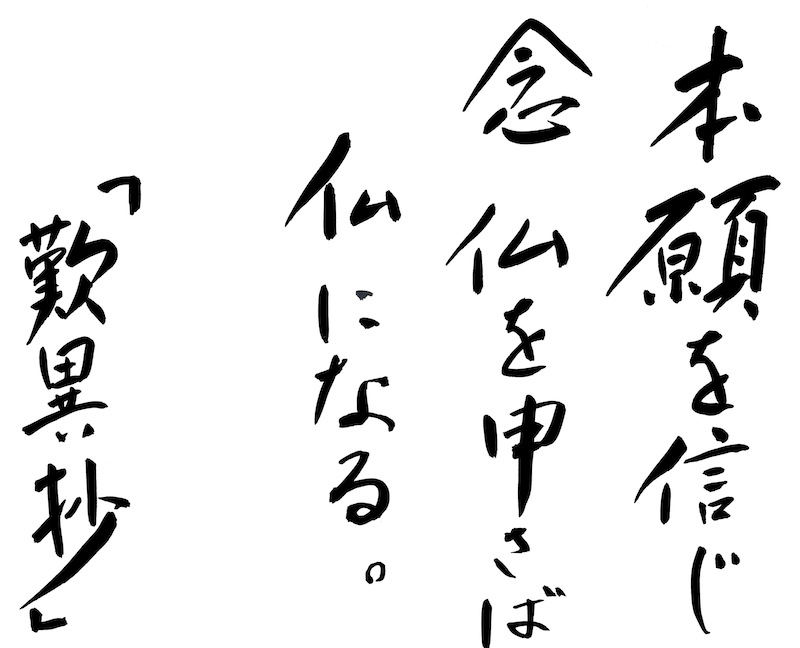 本願を信じ
念仏を申さば
仏になる。
「歎異抄」